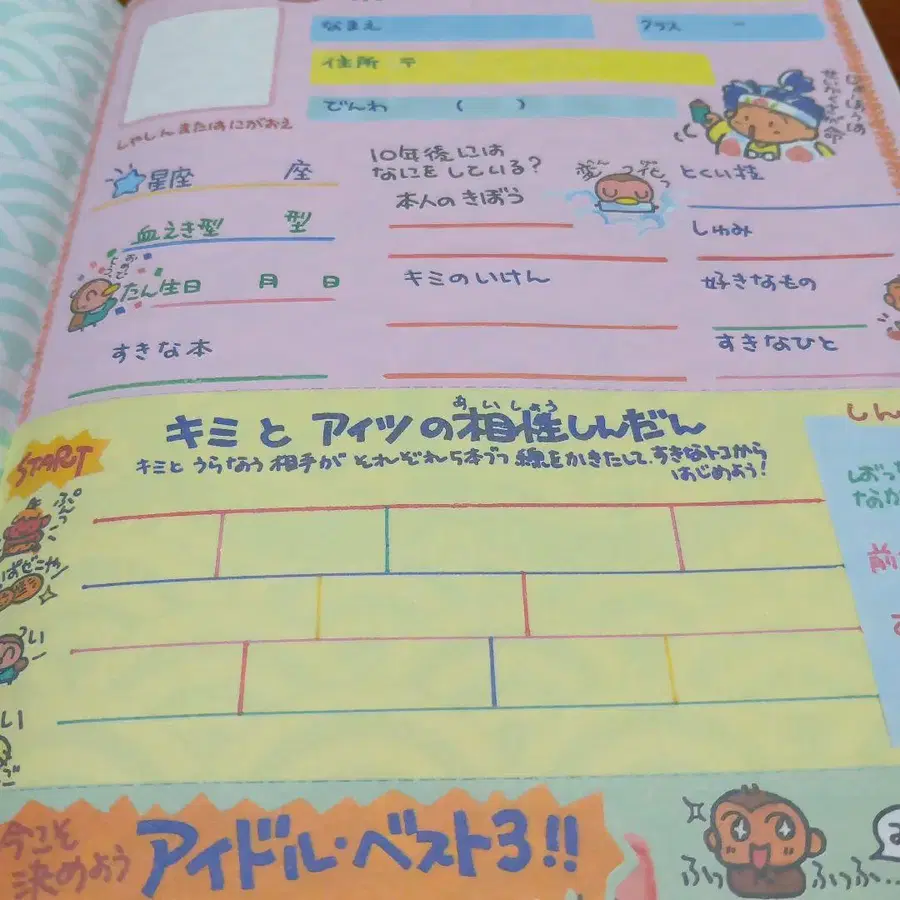 なまえ
クラス ー
住所 〒
でんわ ( )
しゃしんまたはにがおえ
星座 座
10年後には
なにをしている?
本人のきぼう
とくい技
血えき型 型
しゅみ
たん生日 月 日
キミのいけん
好きなもの
すきな本
すきなひと
あいしょう
キミとアイツの相性しんだん
START
キミとうらなう相手がそれぞれ5本づつ線をかきたして、すきなトコから
はじめよう!
しん
ぷんっ
ばっ
なか
前
い
い
今こそ
決めよう
アイドル・ベスト3!!
ふっ
ふっふ...